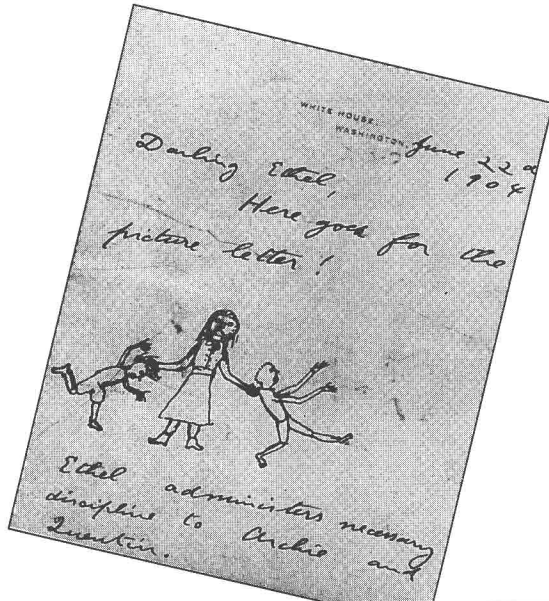 WHITE HOUSE,
WASHINGTON.
June 22d
1904
Darling Ethel,
Here goes for the
picture letter!
Ethel administers necessary
discipline to Archie and
Quentin.